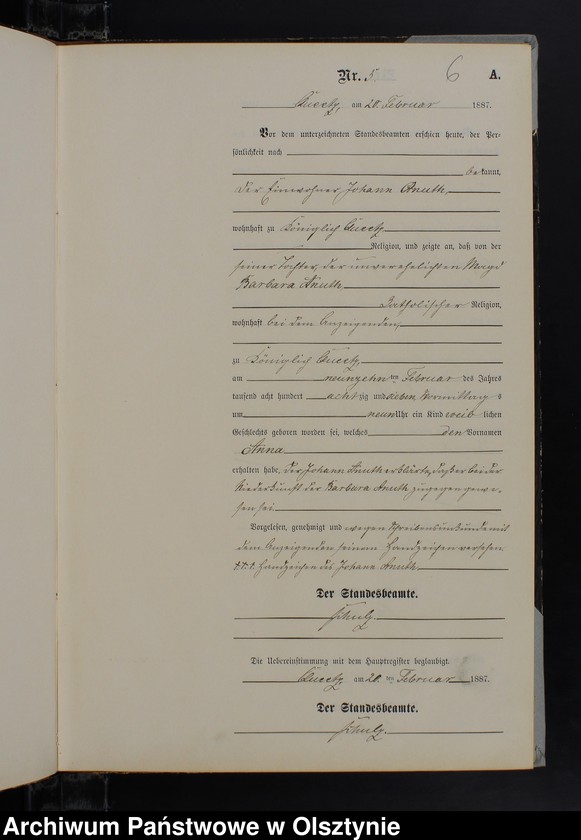 Nr. 5
6
A.
am 20 Februar 1887.
Vor dem unterzeichneten Standesbeamten erschien heute, der Per-
sönlichkeit nach
bekannt,
der Einwohner Johann Anuth
wohnhaft zu Königlich
Religion, und zeigte an, daß von der
seiner Tochter, der unverehelichten Magd
Barbara Anuth
katholischer Religion,
wohnhaft bei dem Anzeigenden,
zu Königlich
am neunzehn ten Februar des Jahres
tausend acht hundert achtzig und sieben Vormittag s
um neun Uhr ein Kind weib lichen
Geschlechts geboren worden sei, welches den Vornamen
Anna
erhalten habe. Der Johann Anuth erklärte, daß er bei der
Niederkunft der Barbara Anuth zugegen gewe-
sen sei
Vorgelesen, genehmigt und wegen Schreibensunkunde mit
dem Anzeigenden seinen Handzeichen versehen
†.†.†. Handzeichen des Johann Anuth
Der Standesbeamte.
Schulz
Die Uebereinstimmung mit dem Hauptregister beglaubigt.
am 20 ten Februar 1887.
Der Standesbeamte.
Schulz.
Archiwum Państwowe w Olsztynie